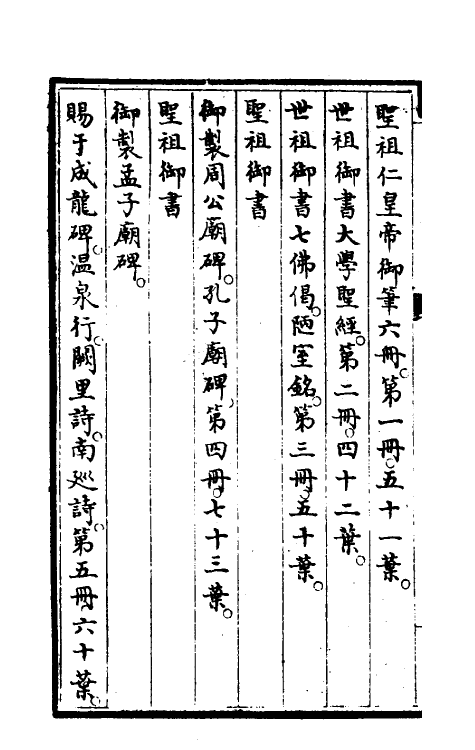 聖祖仁皇帝御筆六冊。第一冊。五十一葉。
世祖御書大學聖經。第二冊。四十二葉。
世祖御書七佛偈。陋室銘。第三冊。五十葉。
聖祖御書
御製周公廟碑。孔子廟碑。第四冊。七十三葉。
聖祖御書
御製孟子廟碑。
賜于成龍碑。温泉行。闕里詩。南廵詩。第五冊。六十葉。